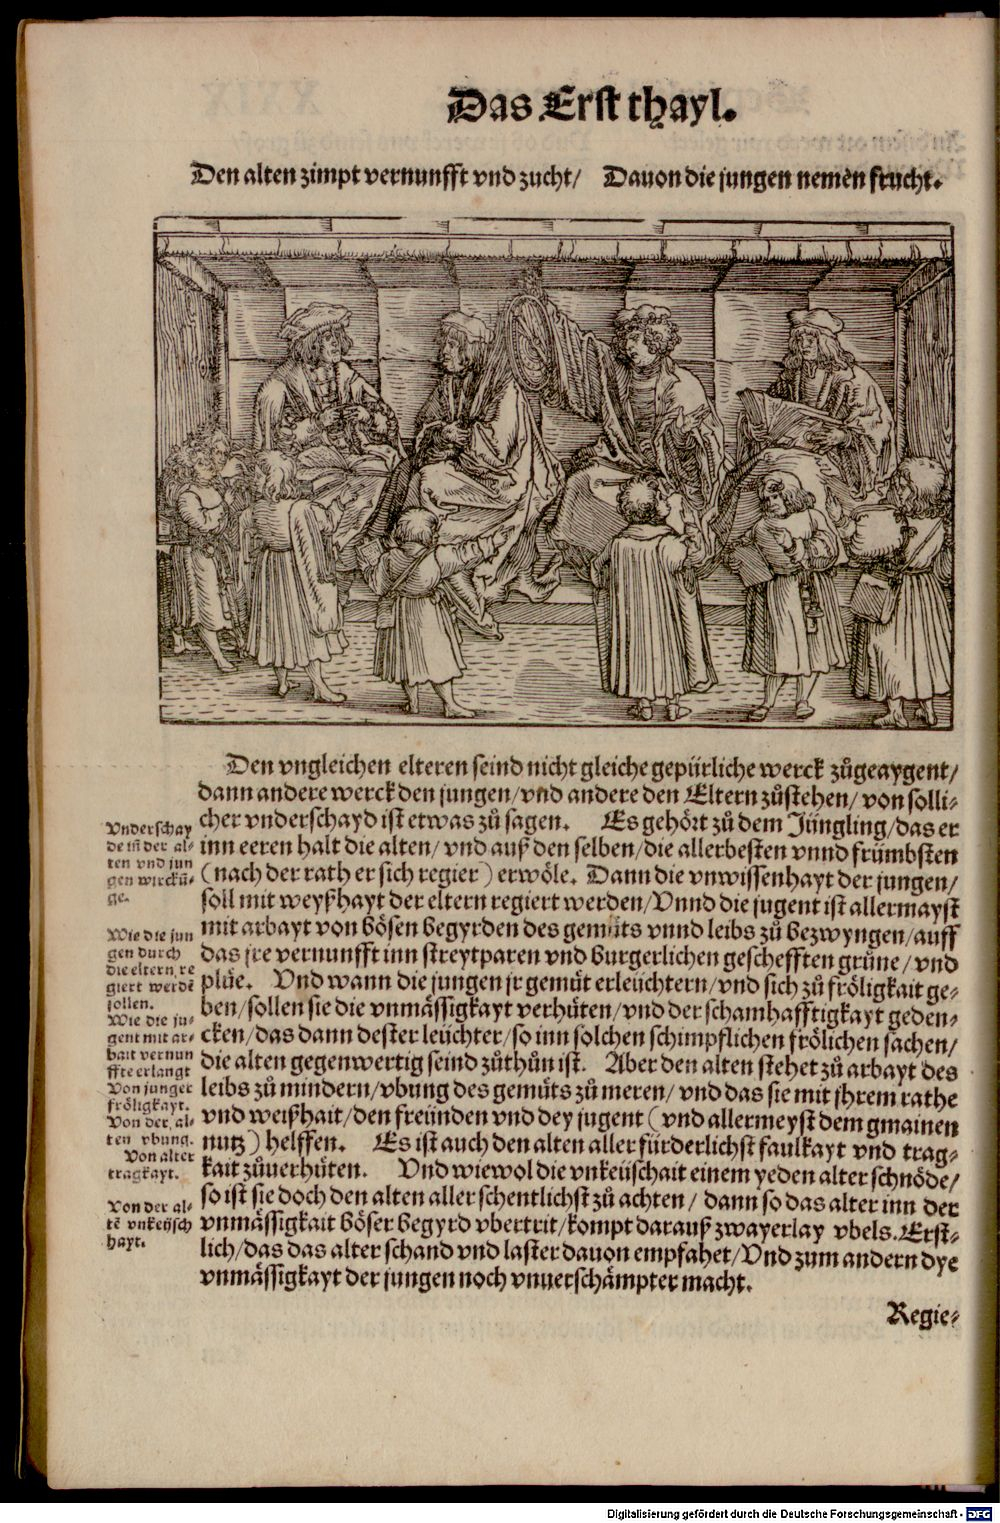 Das Erst thayl.
Den alten zimpt vernunfft vnd zucht/ Dauon die jungen nemen frucht.
Den vngleichen elteren seind nicht gleiche gepürliche werck zůgeaygent/
dann andere werck den jungen/vnd andere den Eltern zůstehen/ von solli-
cher vnderschayd ist etwas zů sagen. Es gehört zů dem Jüngling/das er
inn eeren halt die alten/ vnd auß den selben/die allerbesten vnnd frümbsten
(nach der rath er sich regier) erwöle. Dann die vnwissenhayt der jungen/
soll mit weyßhayt der eltern regiert werden/Vnnd die jugent ist allermayst
mit arbayt von bösen begyrden des gemüts vnnd leibs zů bezwyngen/auff
das jre vernunfft inn streytparen vnd burgerlichen geschefften grüne/vnd
plüe. Vnd wann die jungen jr gemüt erleüchtern/vnd sich zů fröligkait ge-
ben/sollen sie die vnmässigkayt verhüten/vnd der schamhafftigkayt geden-
cken/das dann dester leüchter/so inn solchen schimpflichen frölichen sachen/
die alten gegenwertig seind zůthůn ist. Aber den alten stehet zů arbayt des
leibs zů mindern/vbung des gemüts zů meren/ vnd das sie mit jhrem rathe
vnd weißhait/den freünden vnd dey jugent (vnd allermeyst dem gmainen
nutz) helffen. Es ist auch den alten aller fürderlichst faulkayt vnd trag-
kait zůuerhüten. Vnd wiewol die vnkeüschait einem yeden alter schnöde/
so ist sie doch den alten aller schentlichst zů achten/ dann so das alter inn der
vnmässigkait böser begyrd vbertrit/kompt darauß zwayerlay vbels. Erst-
lich/das das alter schand vnd laster dauon empfahet/Vnd zum andern dye
vnmässigkayt der jungen noch vnuerschämpter macht.
Regie-
Vnderschay
de iñ der al-
ten vnd jun
gen wirckũ-
ge.
Wie die jun
gen durch
die eltern re
giert werdẽ
sollen.
Wie die ju-
gent mit ar-
bait vernun
ffte erlangt
Von junger
fröligkayt.
Von der al-
ten vbung.
Von alter
tragkayt.
Von der al-
tẽ vnkeüsch
hayt.
Digitalisierung gefördert durch die Deutsche Forschungsgemeinschaft - DFG